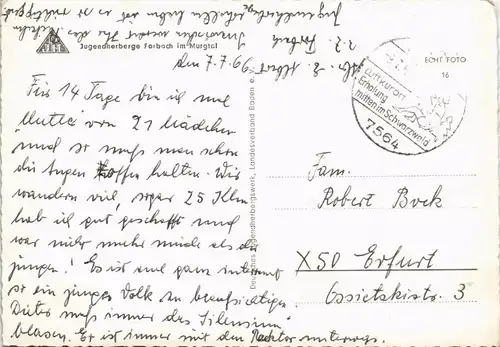 Jugendherberge Forbach im Murgtal
den 7.7.66
Für 14 Tage bin ich mal
"Mutter" von 21 Mädchen
und so muß man schon
die Augen offen halten. Wir
wandern viel, sogar 25 Klm
hab ich gut geschafft und
war nicht mehr müde als die
jungen! Es ist mal ganz interessant
so ein junges Volk zu beaufsichtigen.
Dieter muß immer das "Silentium"
blasen. Er ist immer mit den unterwegs.
Deutsches Jugendherbergswerk, Landesverband Baden e.
z. Z. Forbach
ECHT FOTO
16
Luftkurort
Erholung
mitten im Schwarzwald
7564
Fam.
Robert Bock
X50 Erfurt
Ossietzkistr. 3